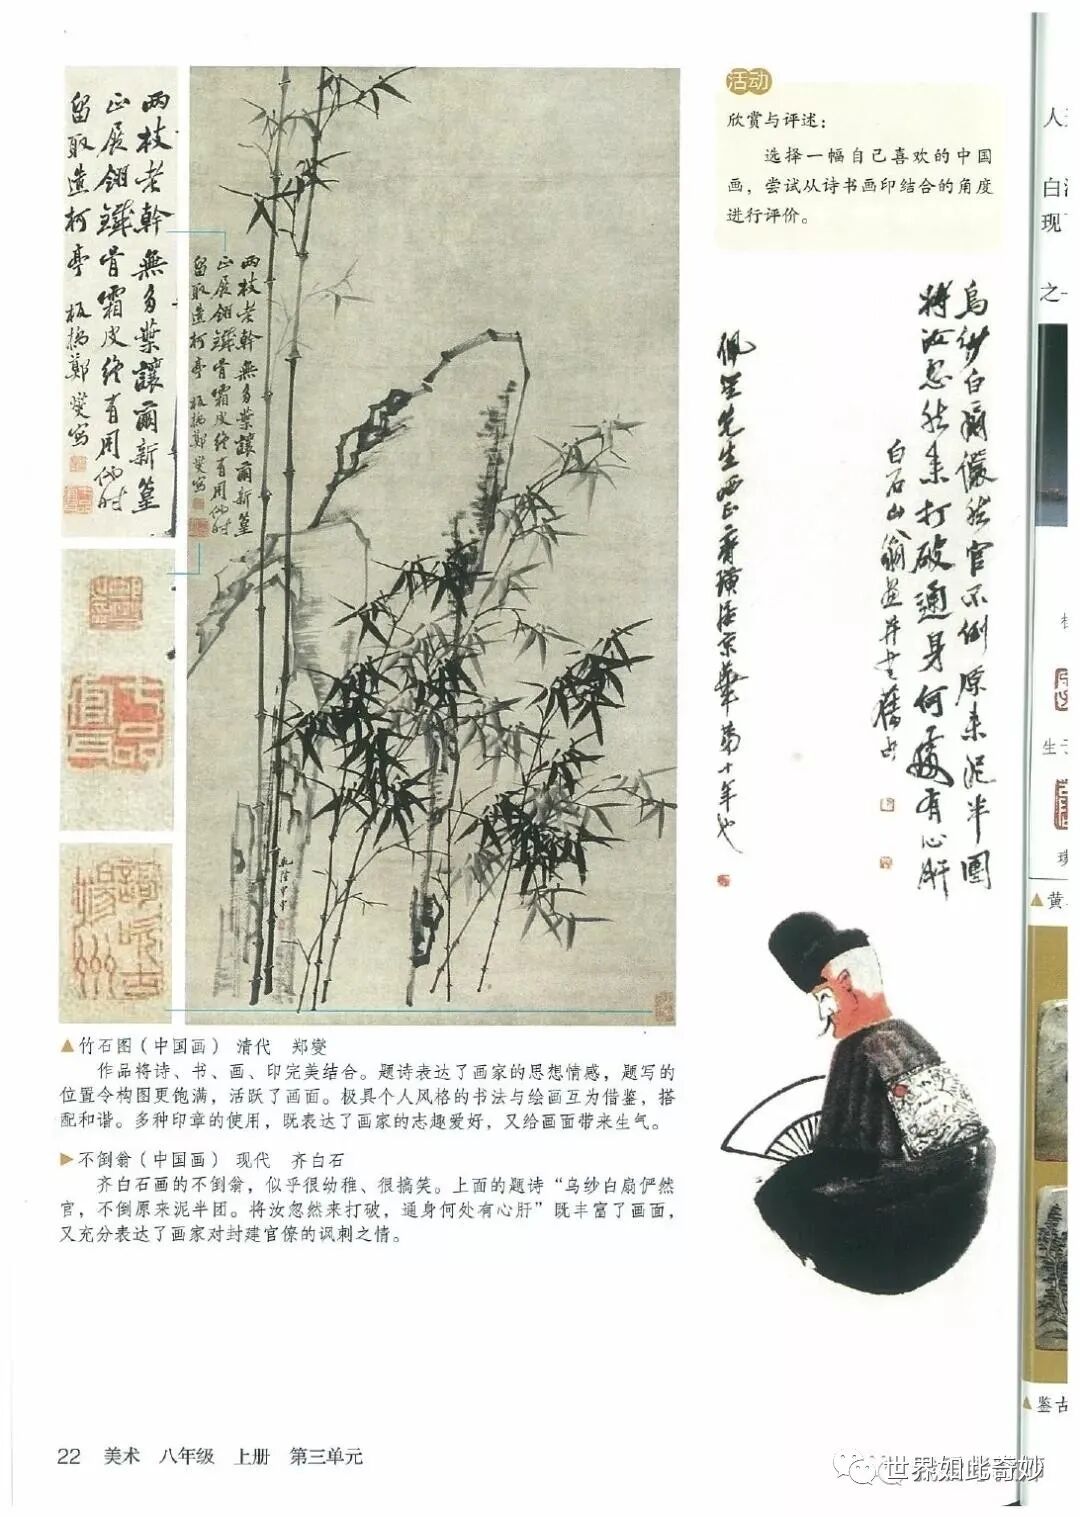 两枝老幹無多葉讓爾新篁
正展翎鐵骨霜皮終有用他时
留取造柯亭 板橋鄭燮寫
七品官耳
歌吹古揚州
两枝老幹無多葉讓爾新篁
正展翎鐵骨霜皮終有用他时
留取造柯亭 板橋鄭燮寫
乾隆甲申
活动
欣赏与评述：
选择一幅自己喜欢的中国
画，尝试从诗书画印结合的角度
进行评价。
烏紗白扇儼然官不倒原来泥半團
將汝忽然来打破通身何處有心肝
白石山翁畫并書舊句
先生晒正齊璜居京華第十年也
▲竹石图（中国画） 清代 郑燮
作品将诗、书、画、印完美结合。题诗表达了画家的思想情感，题写的
位置令构图更饱满，活跃了画面。极具个人风格的书法与绘画互为借鉴，搭
配和谐。多种印章的使用，既表达了画家的志趣爱好，又给画面带来生气。
▶不倒翁（中国画） 现代 齐白石
齐白石画的不倒翁，似乎很幼稚、很搞笑。上面的题诗“乌纱白扇俨然
官，不倒原来泥半团。将汝忽然来打破，通身何处有心肝”既丰富了画面，
又充分表达了画家对封建官僚的讽刺之情。
22 美术 八年级 上册 第三单元
人
白
现
之
生于
▲黄
▲鉴古
世界如此奇妙